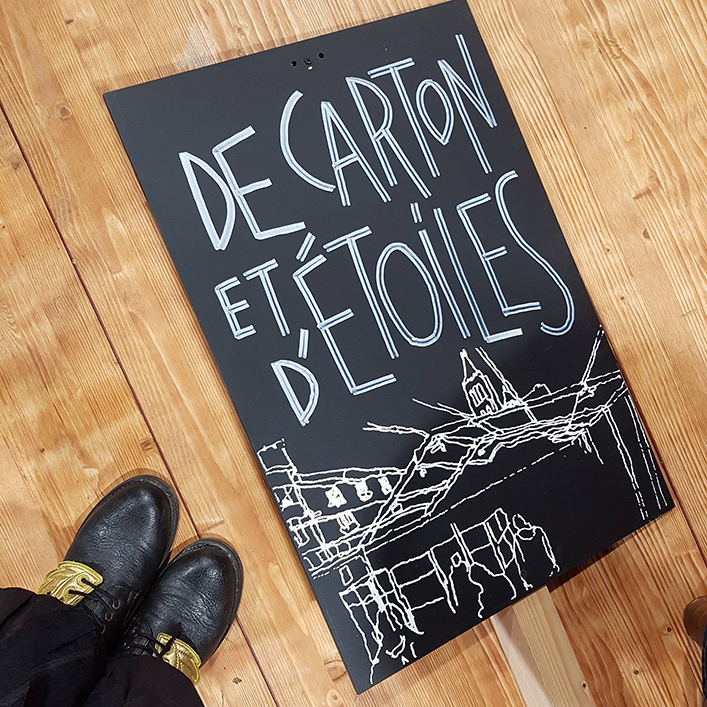 DE CARTON
ET D'ÉTOILES